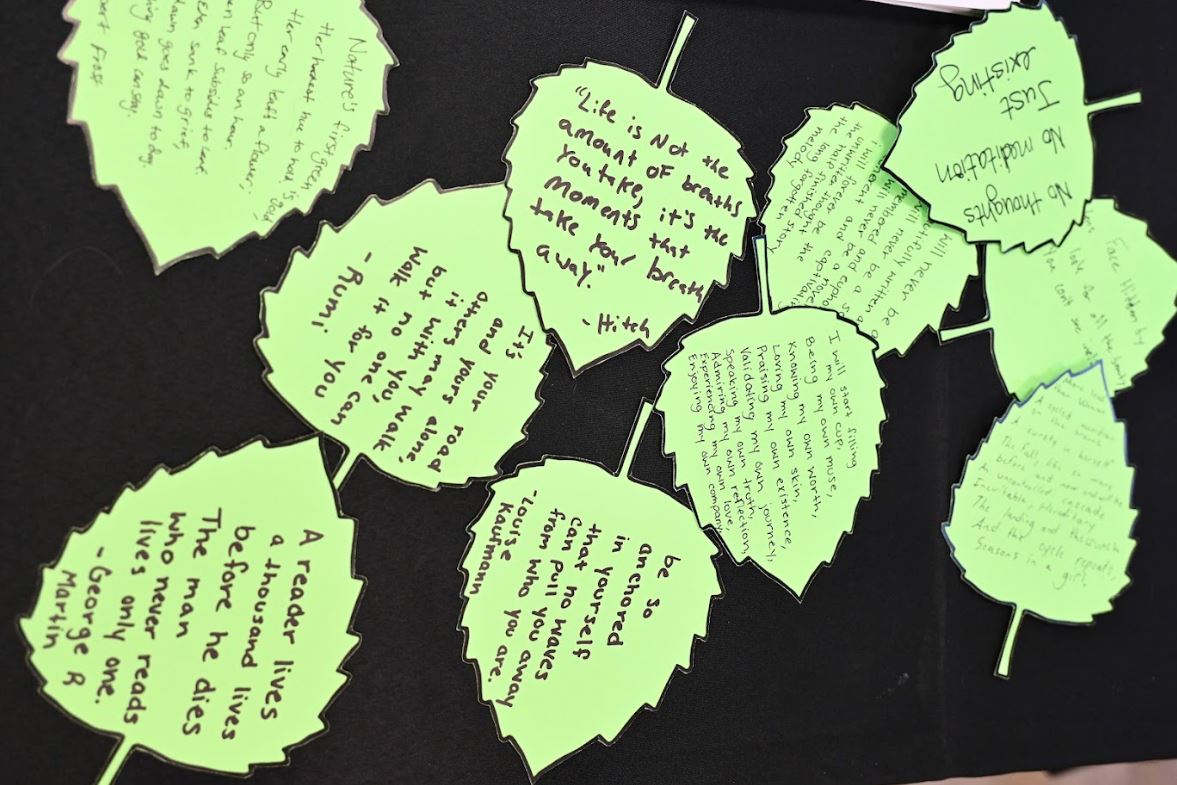 Nature's first green is gold,
Her hardest hue to hold.
Her early leaf's a flower;
But only so an hour.
leaf subsides to leaf
Eden sank to grief,
down goes down to day
gold can stay.
Frost
"Life is Not the
amount of breaths
you take, it's the
moments that
take your breath
away."
- Hitch
It's your road
and yours alone,
others may walk
it with you,
but no one can
walk it for you
- Rumi
A reader lives
a thousand lives
before he dies
The man
who never reads
lives only one.
- George R
Martin
be so
anchored
in yourself
that no waves
can pull you away
from who you are
- Louise
Kaufmann
I will start filling
my own cup,
Being my own muse,
Knowing my own worth,
Loving my own skin,
Praising my own existence,
Validating my own journey,
Speaking my own truth,
Admiring my own reflection,
Experiencing my own love,
Enjoying my own company
will never be a
written
will never be a
membered and
will never be a nove
and the captivatin
I will forever be
the unwritten thought the
the half finished story
the long forgotten
melody
No thoughts
No meditation
Just
existing
Face Hidden by
look for all the beauty
You can't see
on the branch
The fall, like so many
before, and now
An uncontrolled cascade
Inevitable, Hereditary
The landing and
And the cycle repeats,
Seasons in a girl.